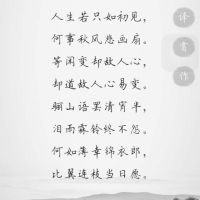 人生若只如初见，
何事秋风悲画扇。
等闲变却故人心，
却道故人心易变。
骊山语罢清宵半，
泪雨霖铃终不怨。
何如薄幸锦衣郎，
比翼连枝当日愿。
译
赏
作